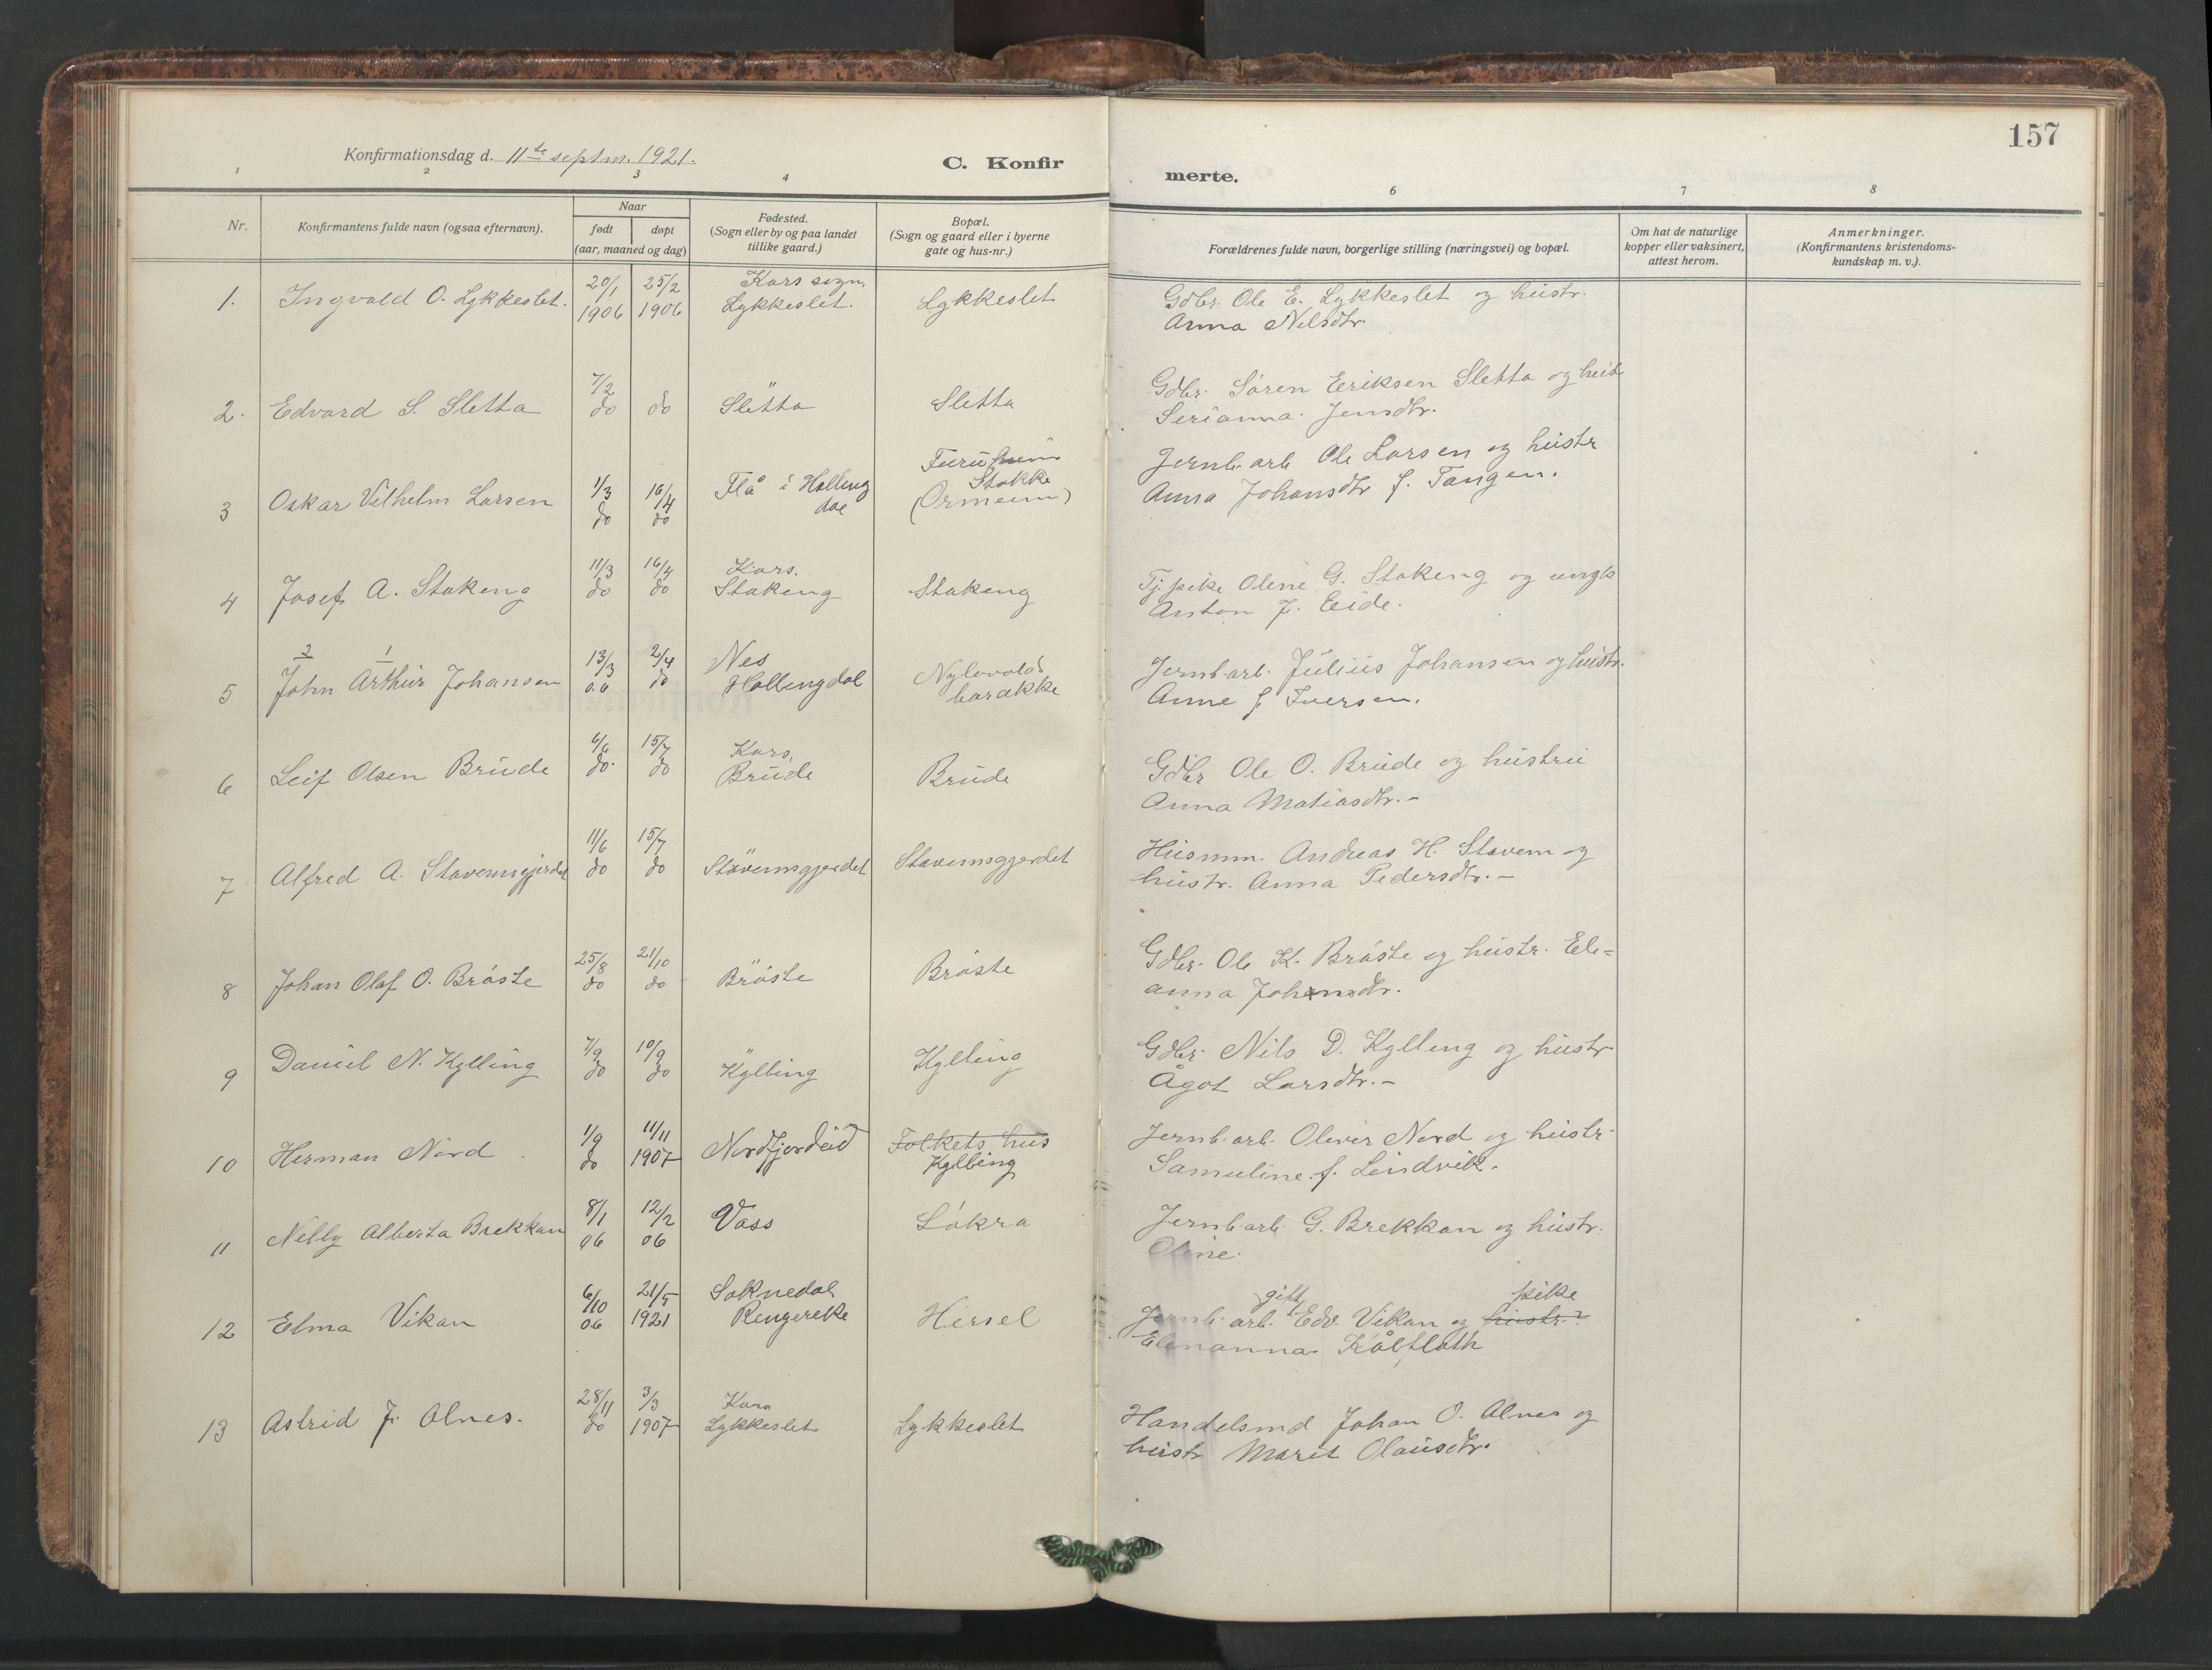 157
Konfirmationsdag d. 11te septm. 1921.
C. Konfir
merte.
1 2 3 4 6 7 8
Nr.
Konfirmantens fulde navn (ogsaa efternavn).
Naar
født døpt
(aar, maaned og dag)
Fødested.
(Sogn eller by og paa landet
tillike gaard.)
Bopæl.
(Sogn og gaard eller i byerne
gate og hus-nr.)
Forældrenes fulde navn, borgerlige stilling (næringsvei) og bopæl.
Om hat de naturlige
kopper eller vaksinert,
attest herom.
Anmerkninger.
(Konfirmantens kristendoms-
kundskap m. v.).
20/1 25/2 Kors sogn.
1. Ingvald O. Lykkeslet. 1906 1906 Lykkeslet. Lykkeslet Gdbr. Ole E. Lykkeslet og hustr.
Anna Nelsdtr.
7/2
2. Edvard S. Sletta do do Sletta Sletta Gdbr. Sören Eeriksen Sletta og hust.
Serianna Jensdtr.
Furuheim
Stokke
3 Oskar Vilhelm Larsen 1/3 do 16/4 do Flå i Halling
dal (Ormeim) Jernb. arb Ole Larsen og hustr
Anna Johansdtr f. Tangen.
11/3 16/4 Kors.
4 Josef A. Stokeng do do Stokeng Stokeng Tj. pike Oline G. Stokeng og ungk
Anton J. Eide.
2 1
5 John Arthur Johansen 13/3 06 2/4 do Nes
Hallingdal Nylovolds
barakke Jernb. arb. Julius Johansen og hustr.
Anne f Iversen.
6/6 15/7 Kors.
6 Leif Olsen Brude do. do Brude Brude Gdbr Ole O. Brude og hustru
Anna Matiasdtr.-
11/6 15/7
7 Alfred A. Stavemsgjerdet do do Stavemsgjerdet Stavemsgjerdet Husmn. Andreas H. Stavem og
hustr. Anna Pedersdtr.-
25/8 21/10
8 Johan Olaf O. Bröste do do Bröste Bröste Gdbr. Ole K. Bröste og hustr. Eli=
anna Johansdtr.
7/9 10/9
9 Daniel N. Kylling do do Kylling Kylling Gdbr. Nils D. Kylling og hustr
Ågot Larsdtr.-
1/9 11/11
10 Herman Nord do 1907 Nordfjordeid Folkets hus
Kylling Jernb. arb. Oliver Nord og hustr.
Samuline f. Lindvik.
8/1 12/2
11 Nelly Alberta Brekkan 06 06 Voss Lökra Jernb arb G. Brekkan og hustr.
Oline.
6/10 21/5 Soknedal
12 Elma Vikan 06 1921 Ringerike Hersel gift pike
Jernb. arb. Edv. Vikan og hustr.?
Elenanna
28/11 3/3 Kors
13 Astrid J. Alnes. do 1907 Lykkeslet Lykkeslet Handelsmd Johan O. Alnes og
hustr Marit Olausdtr.